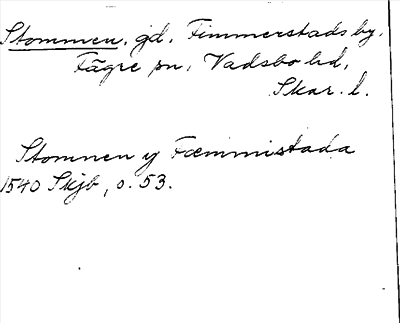 Stommen, gd. Fimmerstads by,
Fägre sn, Vadsbo hd,
Skar. l.
Stomnen y Fæmmistada
1540 Skjb, o. 53.